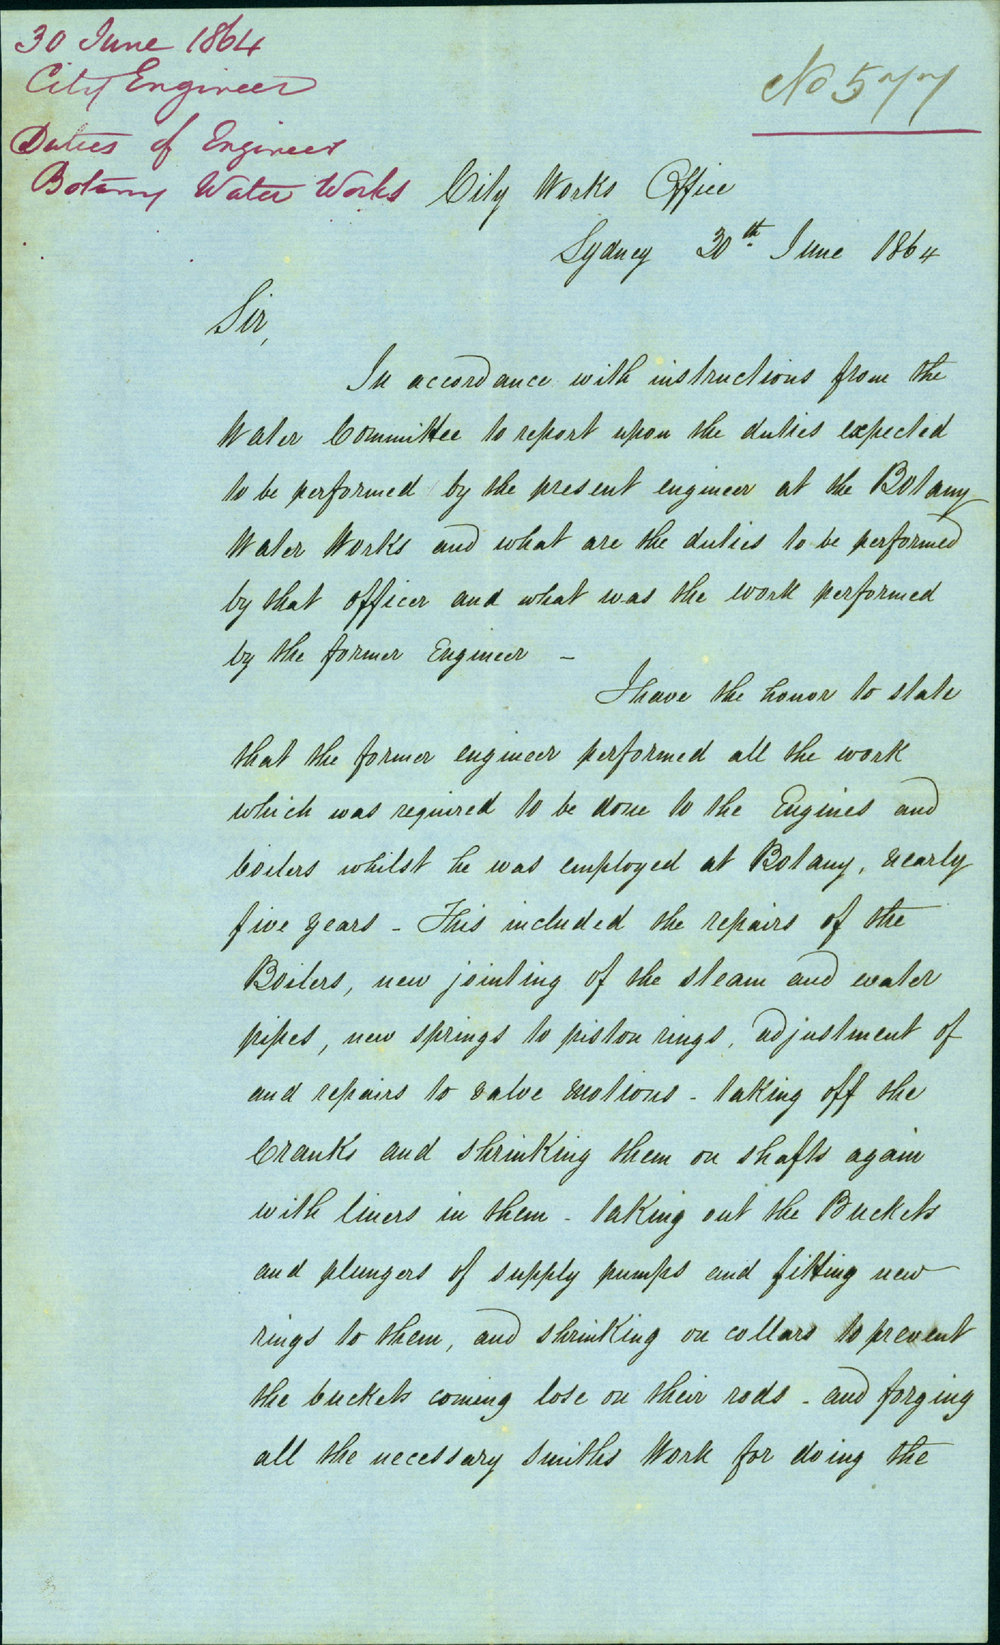 30 June 1864
City Engineer
Duties of Engineer
Botany Water Works
No 577
City Works Office
Sydney 30th June 1864
Sir,
In accordance with instructions from the
Water Committee to report upon the duties expected
to be performed by the present engineer at the Botany
Water Works and what are the duties to be performed
by that officer and what was the work performed
by the former Engineer -
I have the honor to state
that the former engineer performed all the work
which was required to be done to the Engines and
boilers whilst he was employed at Botany, nearly
five years - This included the repairs of the
Boilers, new jointing of the steam and water
pipes, new springs to piston rings, adjustment of
and repairs to valve motions - taking off the
Cranks and shrinking them on shafts again
with liners in them - taking out the Buckets
and plungers of supply pumps and fitting new
rings to them, and shrinking on collars to prevent
the buckets coming lose on their rods - and forging
all the necessary smiths Work for doing the